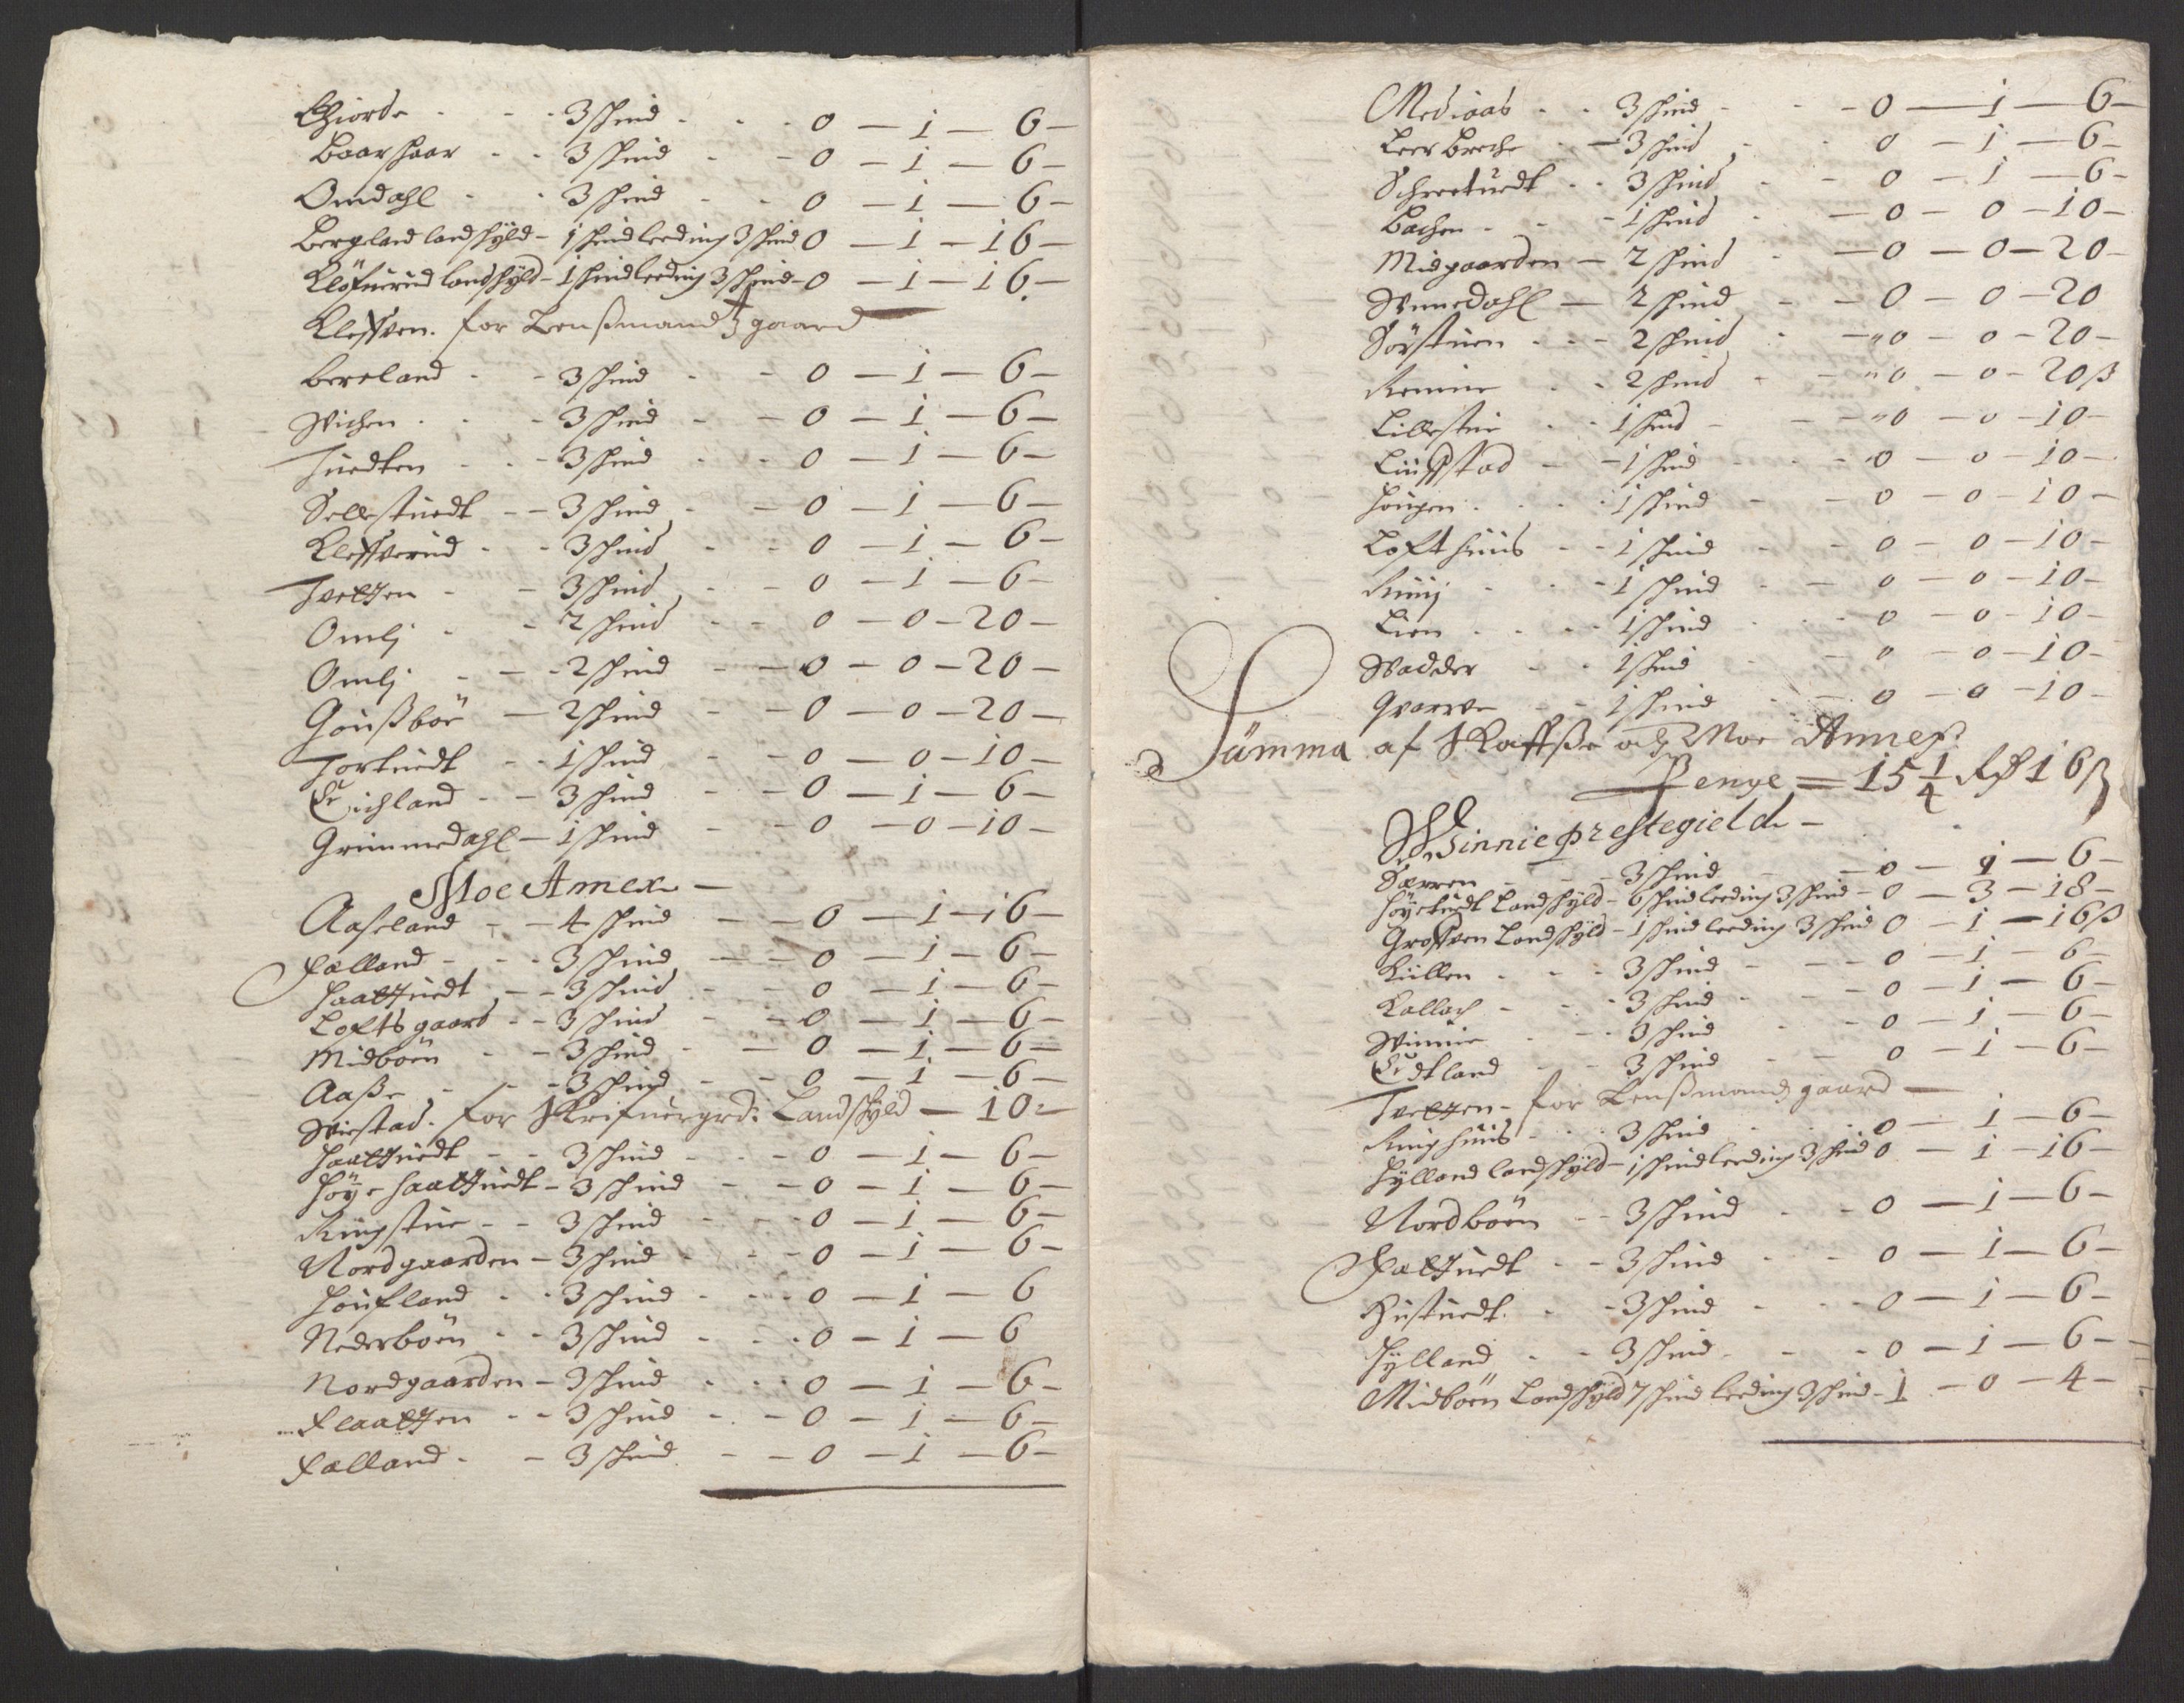 Giorde - - - 3 skind - - - 0 — 1 — 6 —
Baarskaar - - 3 skind - - 0 — 1 — 6 —
Omdahl - - 3 skind - - 0 — 1 — 6 —
Bergeland landskÿld - 1 skind leeding 3 skind 0 — 1 — 16 —
Kløfuerud landskÿld - 1 skind leeding 3 skind - 0 — 1 — 16 —
Kleffven. for Lenßmandz gaard
Bereland - - 3 skind - - 0 — 1 — 6 —
Wichen - - 3 skind - - 0 — 1 — 6 —
Tuedten - - 3 skind - - 0 — 1 — 6 —
Sellestuedt - - 3 skind - - 0 — 1 — 6 —
Kleffverud - - 3 skind - - 0 — 1 — 6 —
Tveitten - - 3 skind - - 0 — 1 — 6 —
Omlj - - 2 skind - - 0 — 0 — 20 —
Omlj - - 2 skind - - 0 — 0 — 20 —
Goußboe — 2 skind - - 0 — 0 — 20 —
Torkuedt - - 1 skind - - 0 — 0 — 10 —
Eichland - - 3 skind - - 0 — 1 — 6 —
Grimmedahl — 1 skind - - 0 — 0 — 10 —
Moe Annex —
Aaseland - - 4 skind - - 0 — 1 — 16 —
Falland - - 3 skind - - 0 — 1 — 6 —
Haattuedt - - 3 skind - - 0 — 1 — 6 —
Loftsgaard - - 3 skind - - 0 — 1 — 6 —
Midbøen - - 3 skind - - 0 — 1 — 6 —
Aaße - - 3 skind - - 0 — 1 — 6 —
Wiestad. for Skrifuergrd: Landskÿld — 10 —
Haattuedt - - 3 skind - - 0 — 1 — 6 —
Høÿe Haattuedt - 3 skind - - 0 — 1 — 6 —
Ringstue - - 3 skind - - 0 — 1 — 6 —
Nordgaarden - 3 skind - - 0 — 1 — 6 —
Houfland - - 3 skind - - 0 — 1 — 6
Nederbøen - - 3 skind - - 0 — 1 — 6
Nordgaarden - 3 skind - - 0 — 1 — 6 —
Flaatten - - 3 skind - - 0 — 1 — 6 —
Falland - - 3 skind - - 0 — 1 — 6 —
Mediaas - - 3 skind - - 0 — 1 — 6 —
Leer Breche - 3 skind - - 0 — 1 — 6 —
Schreetuedt - - 3 skind - - 0 — 1 — 6 —
Bachen - - 1 skind - - 0 — 0 — 10 —
Midgaarden — 2 skind - - 0 — 0 — 20 —
Wimedahl — 2 skind - - 0 — 0 — 20
Søÿstuen - - 2 skind - - 0 — 0 — 20 —
Remme - - 2 skind - - 0 — 0 — 20 ß
Lillestue - - 1 skind - - 0 — 0 — 10 —
Liuffstad - - 1 skind - - 0 — 0 — 10 —
Hougen - - 1 skind - - 0 — 0 — 10 —
Lofthuus - - 1 skind - - 0 — 0 — 10 —
Ruuj - - 1 skind - - 0 — 0 — 10 —
Lien - - 1 skind - - 0 — 0 — 10 —
Wadder - - 1 skind - - 0 — 0 — 10 —
Gvarve - - 1 skind - - 0 — 0 — 10 —
Summa af Skaffße och Moe Annex
Penge = 15 1/4 Rd 16 ß
Winnie præstegield —
Særren - - 3 skind - - 0 — 1 — 6 —
Høÿetuedt Landskÿld - 6 skind leeding 3 skind - 0 — 3 — 18 —
Groffven Landskÿld - 1 skind leeding 3 skind 0 — 1 — 16 ß
Kullen - - 3 skind - - 0 — 1 — 6 —
Kallach - - 3 skind - - 0 — 1 — 6 —
Winnie - - 3 skind - - 0 — 1 — 6 —
Edtland - - 3 skind - - 0 — 1 — 6 —
Tveitten - for Lenßmandz gaard —
Ringhuus - - 3 skind - - 0 — 1 — 6 —
Hÿlland landskÿld - 1 skind leeding 3 skind 0 — 1 — 16 —
Nordbøen - - 3 skind - - 0 — 1 — 6 —
Faltuedt - - 3 skind - - 0 — 1 — 6 —
Hustuedt - - 3 skind - - 0 — 1 — 6 —
Hÿlland - - 3 skind - - 0 — 1 — 6 —
Midbøen Landskÿld 7 skind leeding 3 skind - 1 — 0 — 4 —